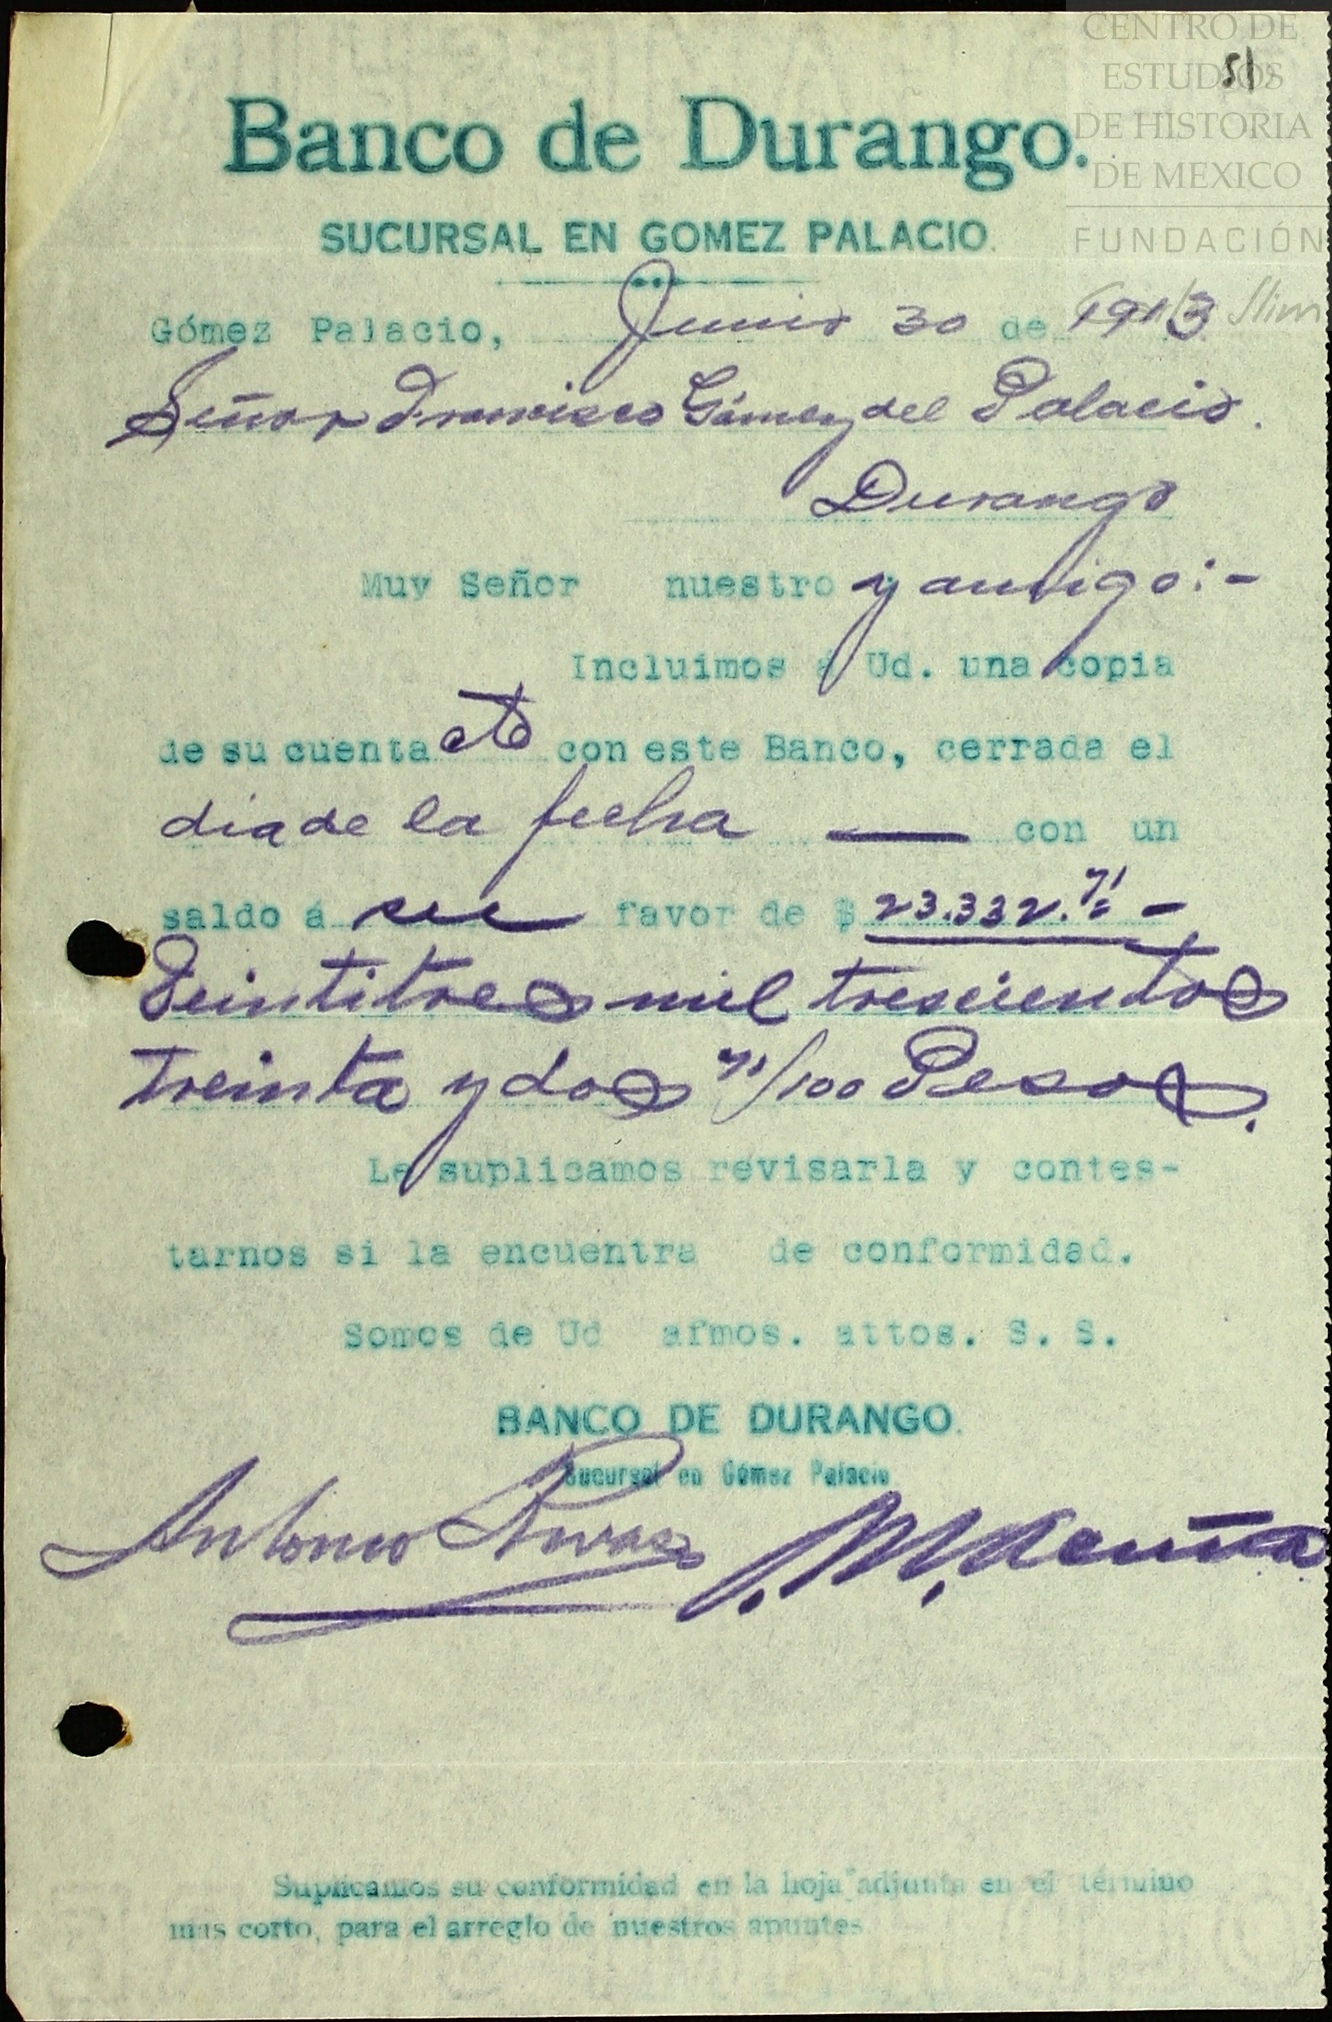 CENTRO DE
ESTUDIOS
DE HISTORIA
DE MEXICO
FUNDACIÓN
Slim
51
Banco de Durango.
SUCURSAL EN GOMEZ PALACIO.
Gómez Palacio, Junio 30 de 1913
Señor Francisco Gómez del Palacio.
Durango
Muy Señor nuestro y amigo:-
Incluimos á Ud. una copia
de su cuenta cte con este Banco, cerrada el
dia de la fecha — con un
saldo á su favor de $ 23.332.71 -
Veintitres mil trescientos
treinta y dos 71/100 Pesos.
Le suplicamos revisarla y contes-
tarnos si la encuentra de conformidad.
Somos de Ud afmos. attos. S. S.
BANCO DE DURANGO.
Sucursal en Gómez Palacio
Antonio
Suplicamos su conformidad en la hoja adjunta en el término
mas corto, para el arreglo de nuestros apuntes